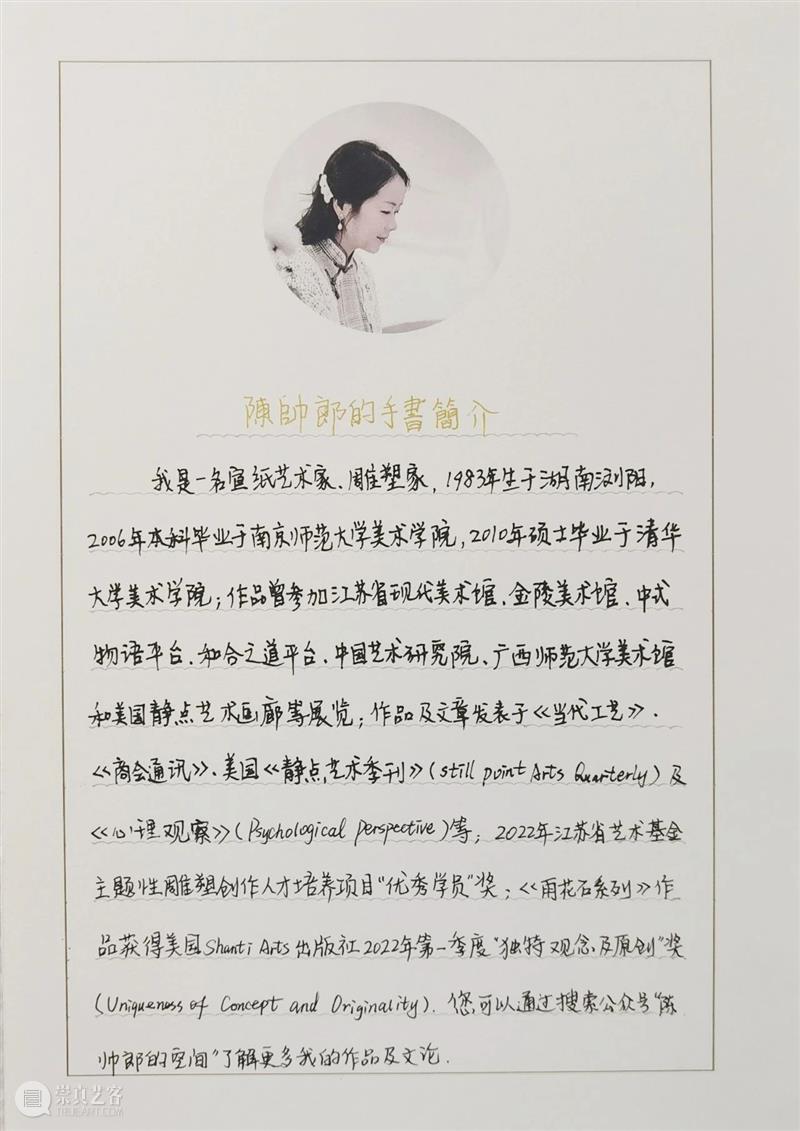 陳帥郎的手書簡介
我是一名宣纸艺术家、雕塑家，1983年生于湖南浏阳，
2006年本科毕业于南京师范大学美术学院，2010年硕士毕业于清华
大学美术学院；作品曾参加江苏省现代美术馆、金陵美术馆、中式
物语平台、和合之道平台、中国艺术研究院、广西师范大学美术馆
和美国静点艺术画廊等展览；作品及文章发表于《当代工艺》、
《商会通讯》、美国《静点艺术季刊》（still point Arts Quarterly）及
《心理观察》（Psychological perspective）等；2022年江苏省艺术基金
主题性雕塑创作人才培养项目“优秀学员”奖；《雨花石系列》作
品获得美国Shanti Arts出版社2022年第一季度“独特观念及原创”奖
（Uniqueness of Concept and Originality）. 您可以通过搜索公众号“陈
帅郎的空间”了解更多我的作品及文论.
崇真艺客
TRUEART.COM